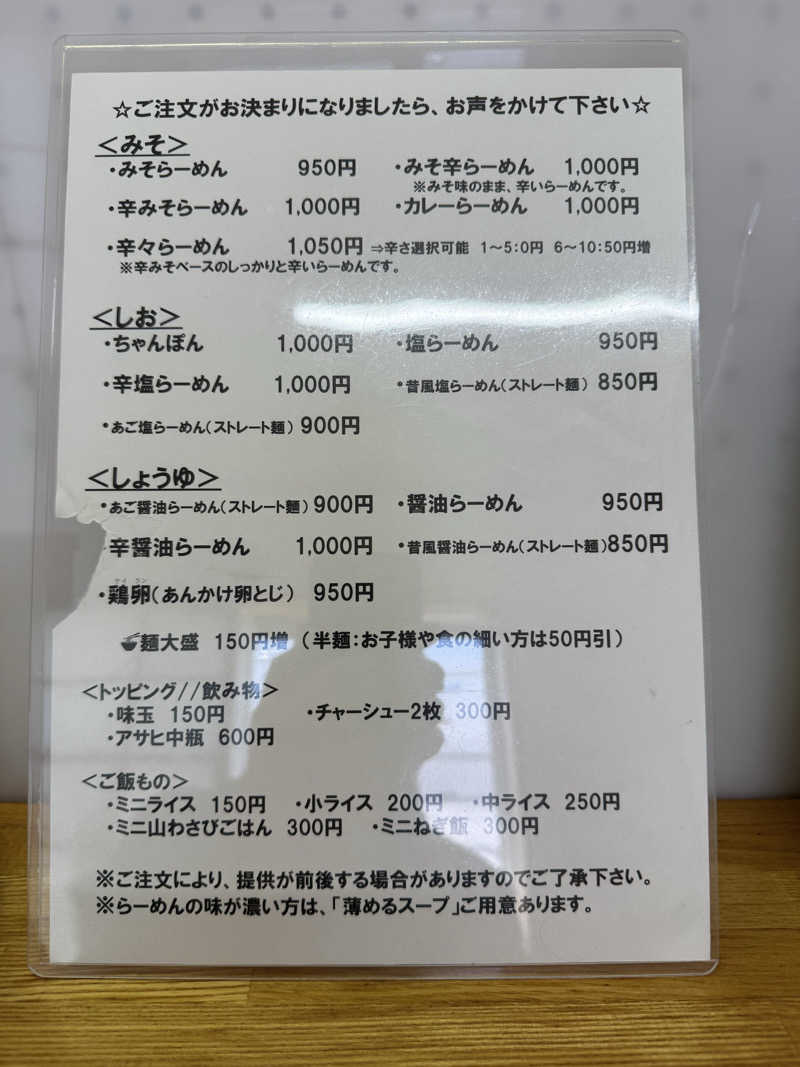 ☆ご注文がお決まりになりましたら、お声をかけて下さい☆
＜みそ＞
・みそらーめん 950円 ・みそ辛らーめん 1,000円
※みそ味のまま、辛いらーめんです。
・辛みそらーめん 1,000円 ・カレーらーめん 1,000円
・辛々らーめん 1,050円 ⇒辛さ選択可能 1～5:0円 6～10:50円増
※辛みそベースのしっかりと辛いらーめんです。
＜しお＞
・ちゃんぽん 1,000円 ・塩らーめん 950円
・辛塩らーめん 1,000円 ・昔風塩らーめん（ストレート麺） 850円
・あご塩らーめん（ストレート麺） 900円
＜しょうゆ＞
・あご醤油らーめん（ストレート麺） 900円 ・醤油らーめん 950円
辛醤油らーめん 1,000円 ・昔風醤油らーめん（ストレート麺）850円
・鶏卵（あんかけ卵とじ） 950円
麺大盛 150円増 （半麺：お子様や食の細い方は50円引）
＜トッピング//飲み物＞
・味玉 150円 ・チャーシュー2枚 300円
・アサヒ中瓶 600円
＜ご飯もの＞
・ミニライス 150円 ・小ライス 200円 ・中ライス 250円
・ミニ山わさびごはん 300円 ・ミニねぎ飯 300円
※ご注文により、提供が前後する場合がありますのでご了承下さい。
※らーめんの味が濃い方は、「薄めるスープ」ご用意あります。